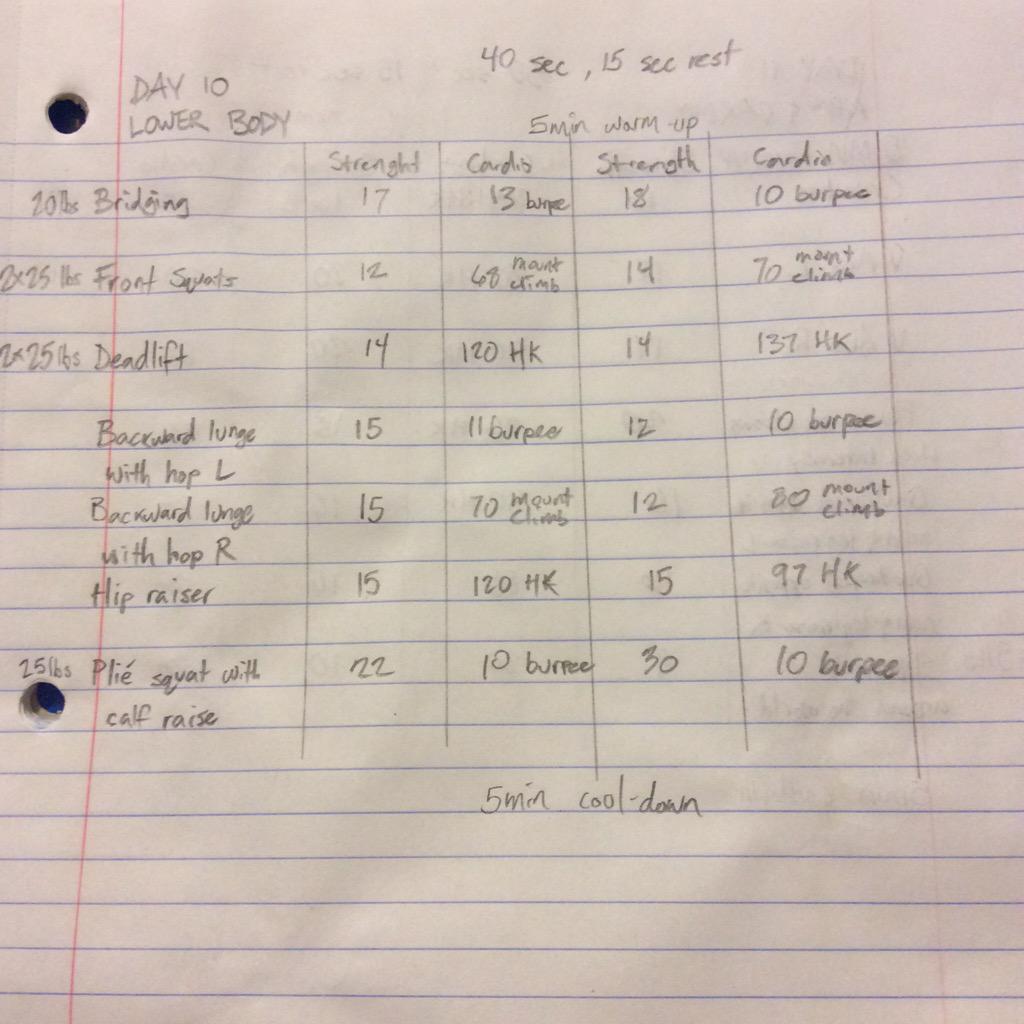 40 sec, 15 sec rest
DAY 10
LOWER BODY
5min warm-up
Strenght Cardio Strength Cardio
20lbs Bridging 17 13 burpee 18 10 burpee
2x25 lbs Front Squats 12 68 mount climb 14 70 mount climb
2x25lbs Deadlift 14 120 HK 14 137 HK
Backward lunge 15 11 burpee 12 10 burpee
with hop L
Backward lunge 15 70 mount climb 12 80 mount climb
with hop R
Hip raiser 15 120 HK 15 97 HK
25lbs Plié squat with 22 10 burpee 30 10 burpee
calf raise
5min cool-down